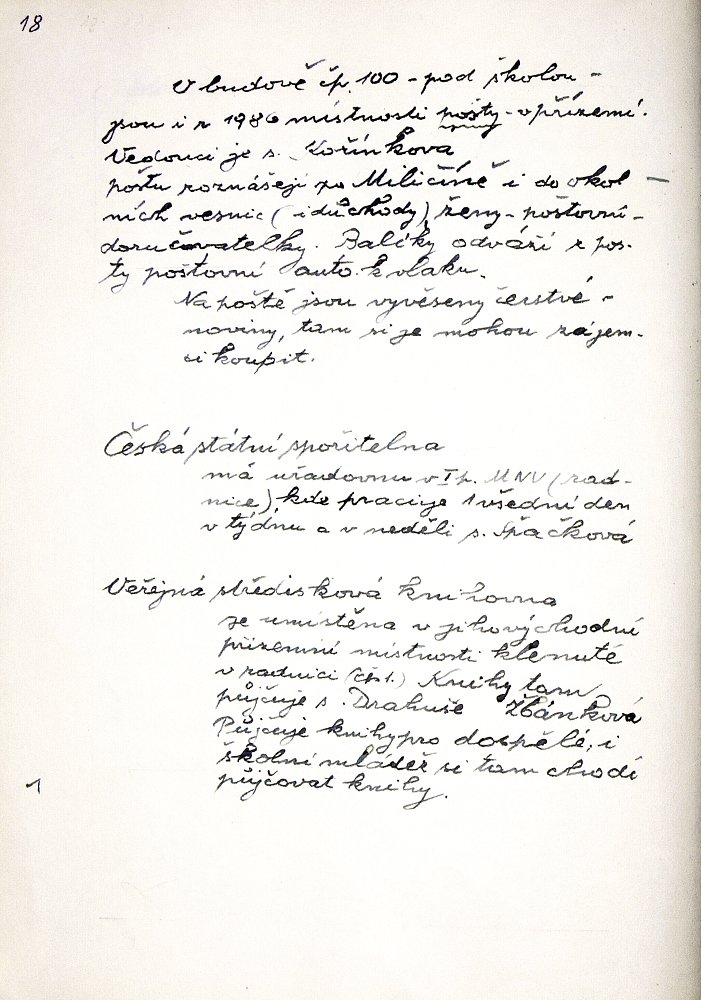 18
V budově čp. 100 - pod školou -
jsou i r 1986 místnosti pošty - v přízemí.
Vedoucí je s. Kořínkova
poštu roznášejí po Miličíně i do okol -
ních vesnic (i důchody) ženy - poštovní -
doručovatelky. Balíky odváží z poš-
ty poštovní auto k vlaku.
Na poště jsou vyvěseny čerstvé -
noviny, tam si je mohou zájem-
ci koupit.
Česká státní spořitelna
má úřadovnu v I p. MNV (rad-
nice), kde pracuje 1 všední den
v týdnu a v neděli s. Špačková
Veřejná středisková knihovna
je umístěna v jihovýchodní
přízemní místnosti klenuté
v radnici (čp 1.) Knihy tam
půjčuje s. Drahuše Žbánková
Půjčuje knihy pro dospělé, i
školní mládež si tam chodí
půjčovat knihy.